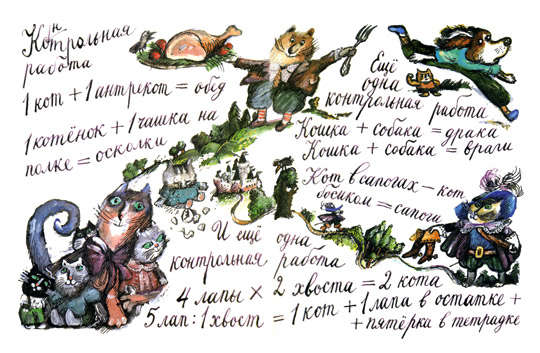 Контрольная
работа
1 кот + 1 антрекот = обед
1 котёнок + 1 чашка на
полке = осколки
Ещё
одна
контрольная работа
Кошка + собака = драка
Кошка + собака = враги
Кот в сапогах – кот
босиком = сапоги
И ещё одна
контрольная работа
4 лапы × 2 хвоста = 2 кота
5 лап : 1 хвост = 1 кот + 1 лапа в остатке +
+ пятёрка в тетрадке